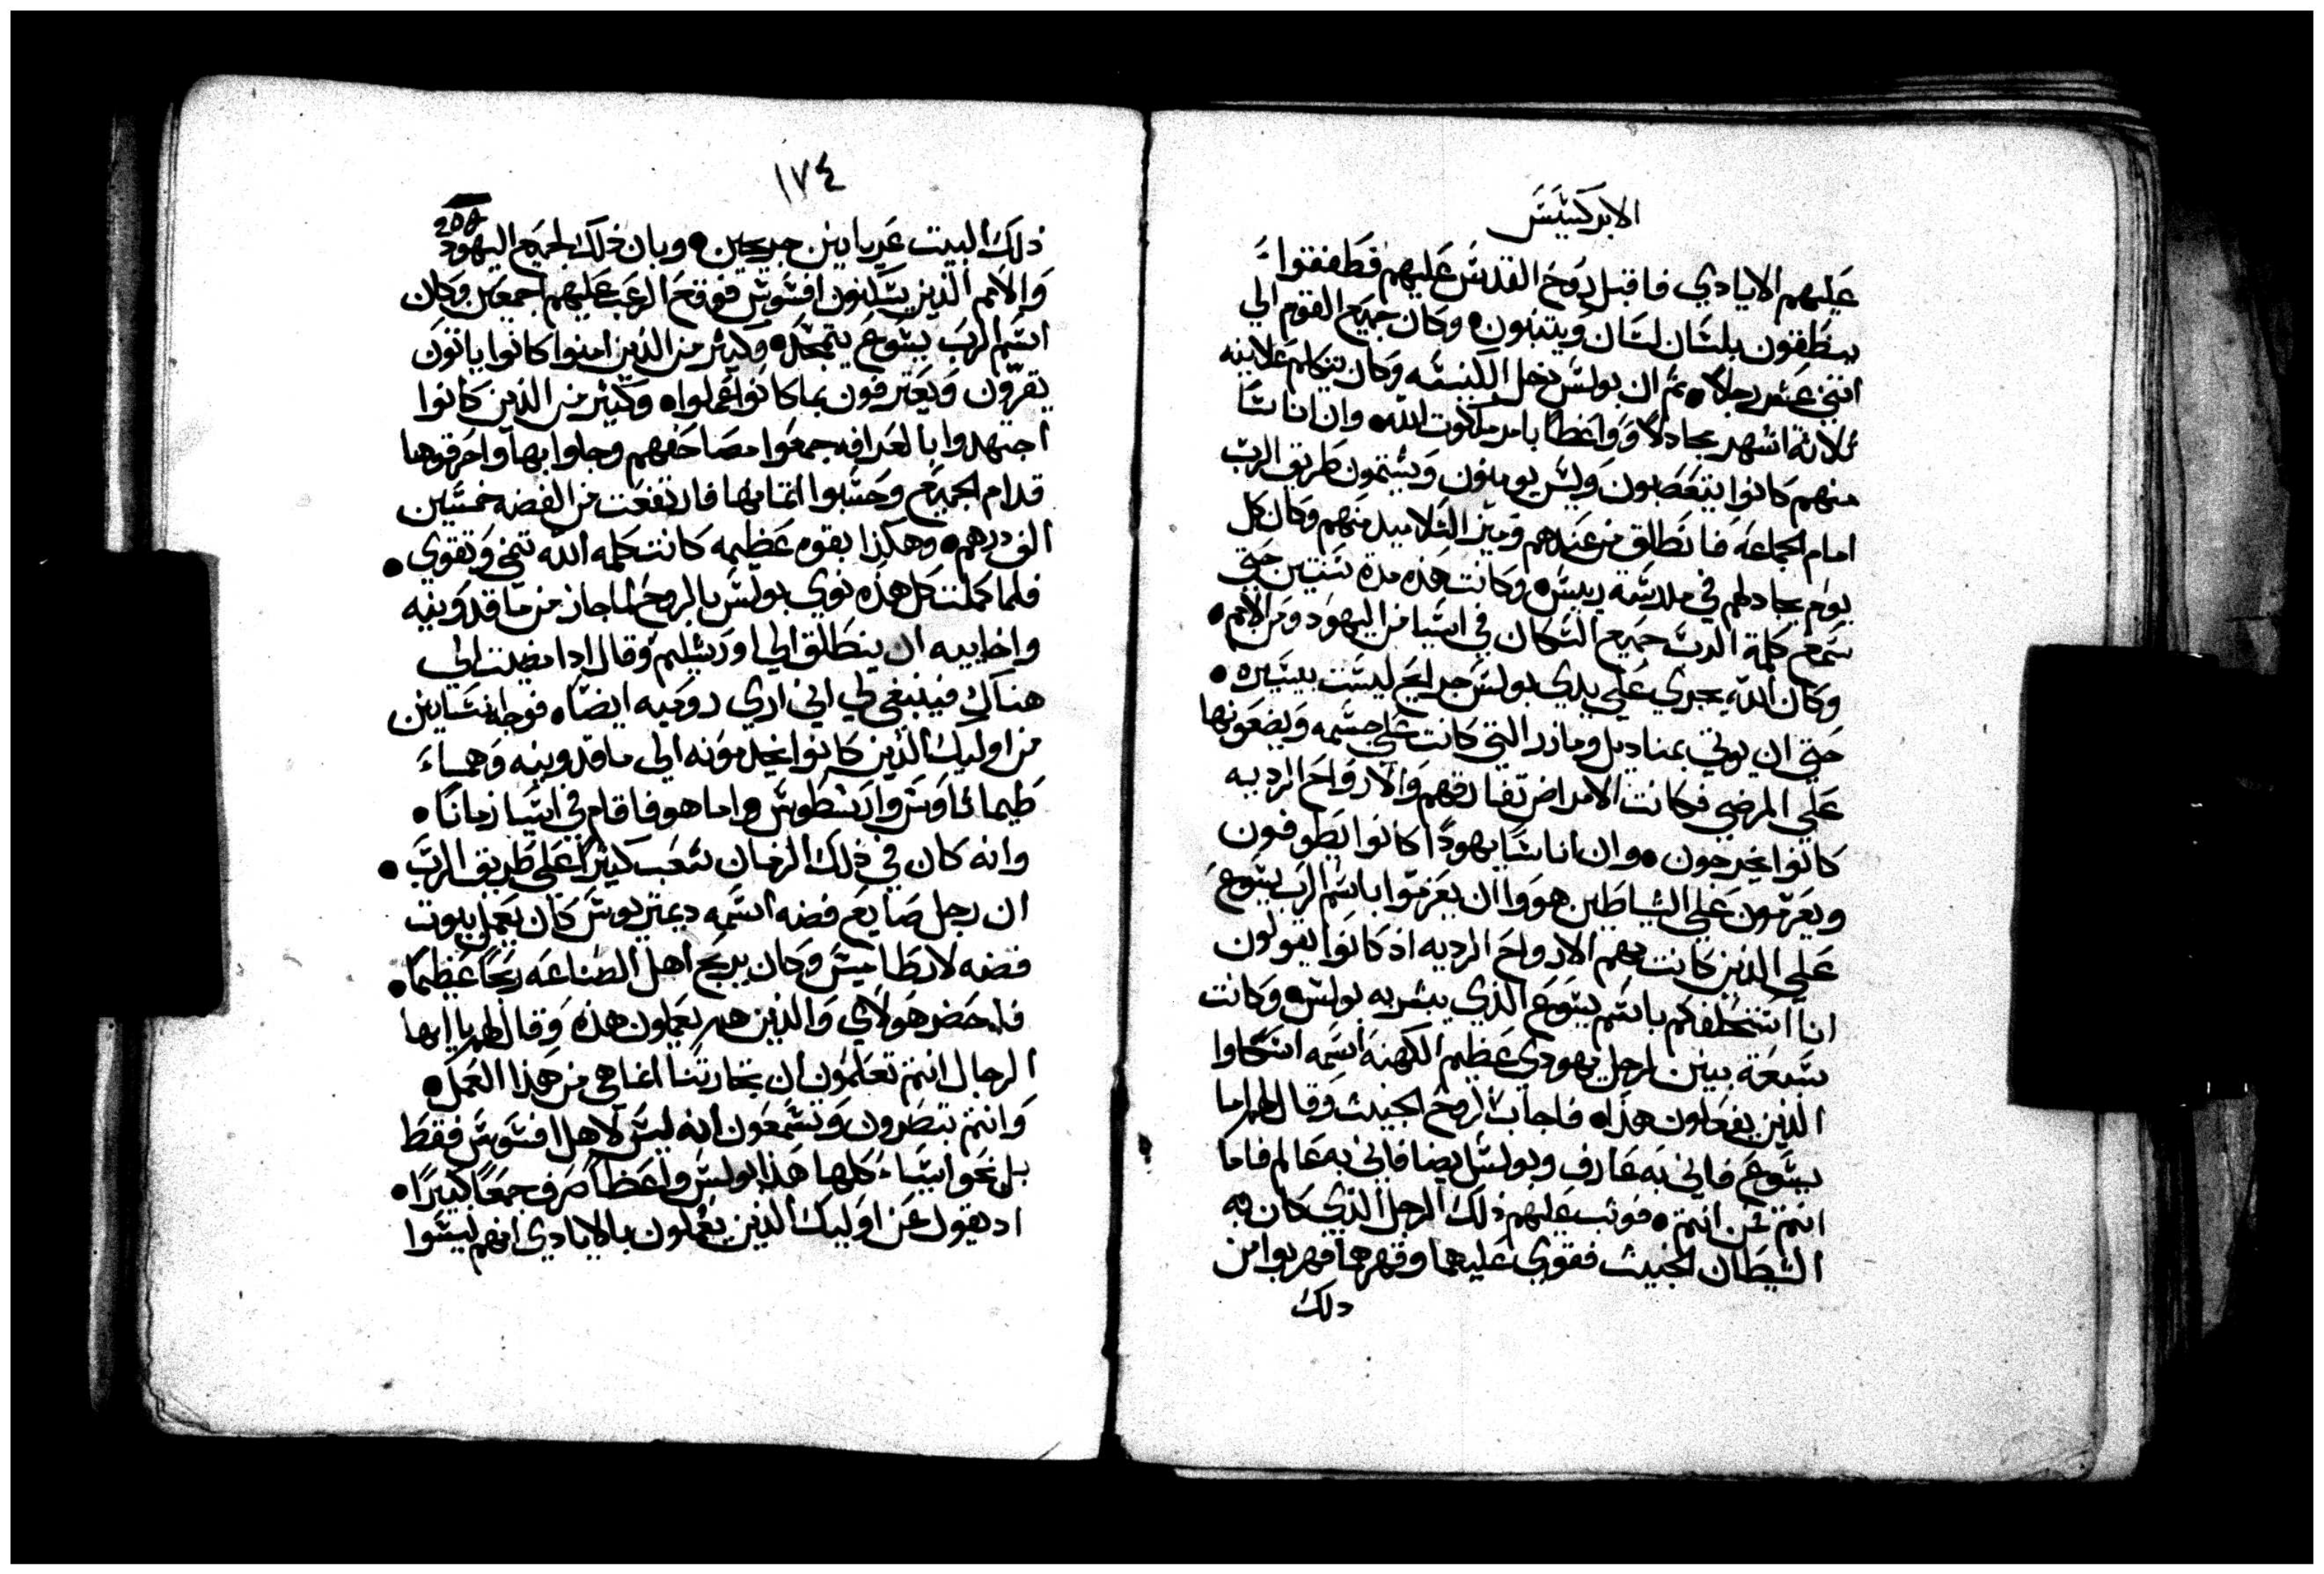 الابركسيس
عليهم الايادي فاقبل روح القدس عليهم فطفقوا
ينطقون بلسان لسان ويتنبون • وكان جميع القوم الي
اثني عشر رجلا • ثم ان بولس دخل الكنيسه وكان يتكلم علانيه
ثلاثة اشهر مجادلا وواعظا بامر ملكوت الله • وان اناسا
منهم كانوا يتعصبون وليس يومنون ويشتمون طريق الرب
امام الجماعه فانطلق من عندهم وميز التلاميد منهم وكان كل
يوم يجادلهم في مدرسة • وكانت هذه مدة سنتين حتي
سمع كلمة الرب جميع السكان في اسيا من اليهود ومن الامم •
وكان الله يجري علي يدي بولس جرايح ليست بيسيره •
حتي ان يوتي بمناديل ومازر التي كانت علي جسمه ويضعونها
علي المرضي فكانت الامراض تفارقهم والارواح الرديه
كانوا يخرجون • وان اناسا يهودا كانوا يطوفون
ويعزمون علي الشياطين هووا ان يعزموا باسم الرب يسوع
علي الذين كانت بهم الارواح الرديه اذ كانوا يقولون
انا استحلفكم باسم يسوع الذي يبشر به بولس • وكانت
سبعة بنين لرجل يهودي عظيم الكهنه اسمه اسكاوا
الذين يفعلون هذا • فاجاب الروح الخبيث وقال لهم اما
يسوع فاني به عارف وبولس ايضا فاني به عالم فاما
انتم فمن انتم • فوثب عليهم ذلك الرجل الذي كان به
الشيطان الخبيث فقوي عليهما وقهرهما فهربوا من
دلك
١٧٤
208
ذلك البيت عريانين جريحين • وبان ذلك لجميع اليهود
والامم الذين يسكنون افسوس فوقع الرعب عليهم اجمعين وكان
اسم الرب يسوع يتمجد • وكثير من الذين امنوا كانوا ياتون
يقرون ويعترفون بما كانوا عملوا • وكثير من الذين كانوا
اجتهدوا بالعرافه جمعوا مصاحفهم وجاوا بها واحرقوها
قدام الجميع وحسبوا اثمانها فارتفعت من الفضه خمسين
الف درهم • وهكذا بقوه عظيمه كانت كلمه الله تنمي وتقوي •
فلما كملت كل هذه نوي بولس بالروح لما جاز من ماقدونيه
واخاييه ان ينطلق الي اورشليم وقال ادا مضيت الي
هناك فينبغي لي اني اري روميه ايضا • فوجه انسانين
من اوليك الذين كانوا يخدمونه الي ماقدونيه وهما
طيماثاوس وارسطوس واما هو فاقام في اسيا زمانا •
وانه كان في ذلك الزمان شعب كثيرا علي طريق الرب •
ان رجل صايغ فضه اسمه ديمتريوس كان يعمل بيوت
فضه لارطاميس وكان يربح اهل الصناعه ربحا عظيما •
فاحضر هولاي والذين هم يعملون هذه وقال لهم يا ايها
الرجال انتم تعلمون ان تجارتنا انما هي من هذا العمل •
وانتم تنظرون وتسمعون انه ليس لاهل افسوس فقط
بل نحو اسياء كلها هذا بولس واعظا صرف جمعا كبيرا •
اد يقول عن اوليك الذين يعملون بالايادي انهم ليسوا